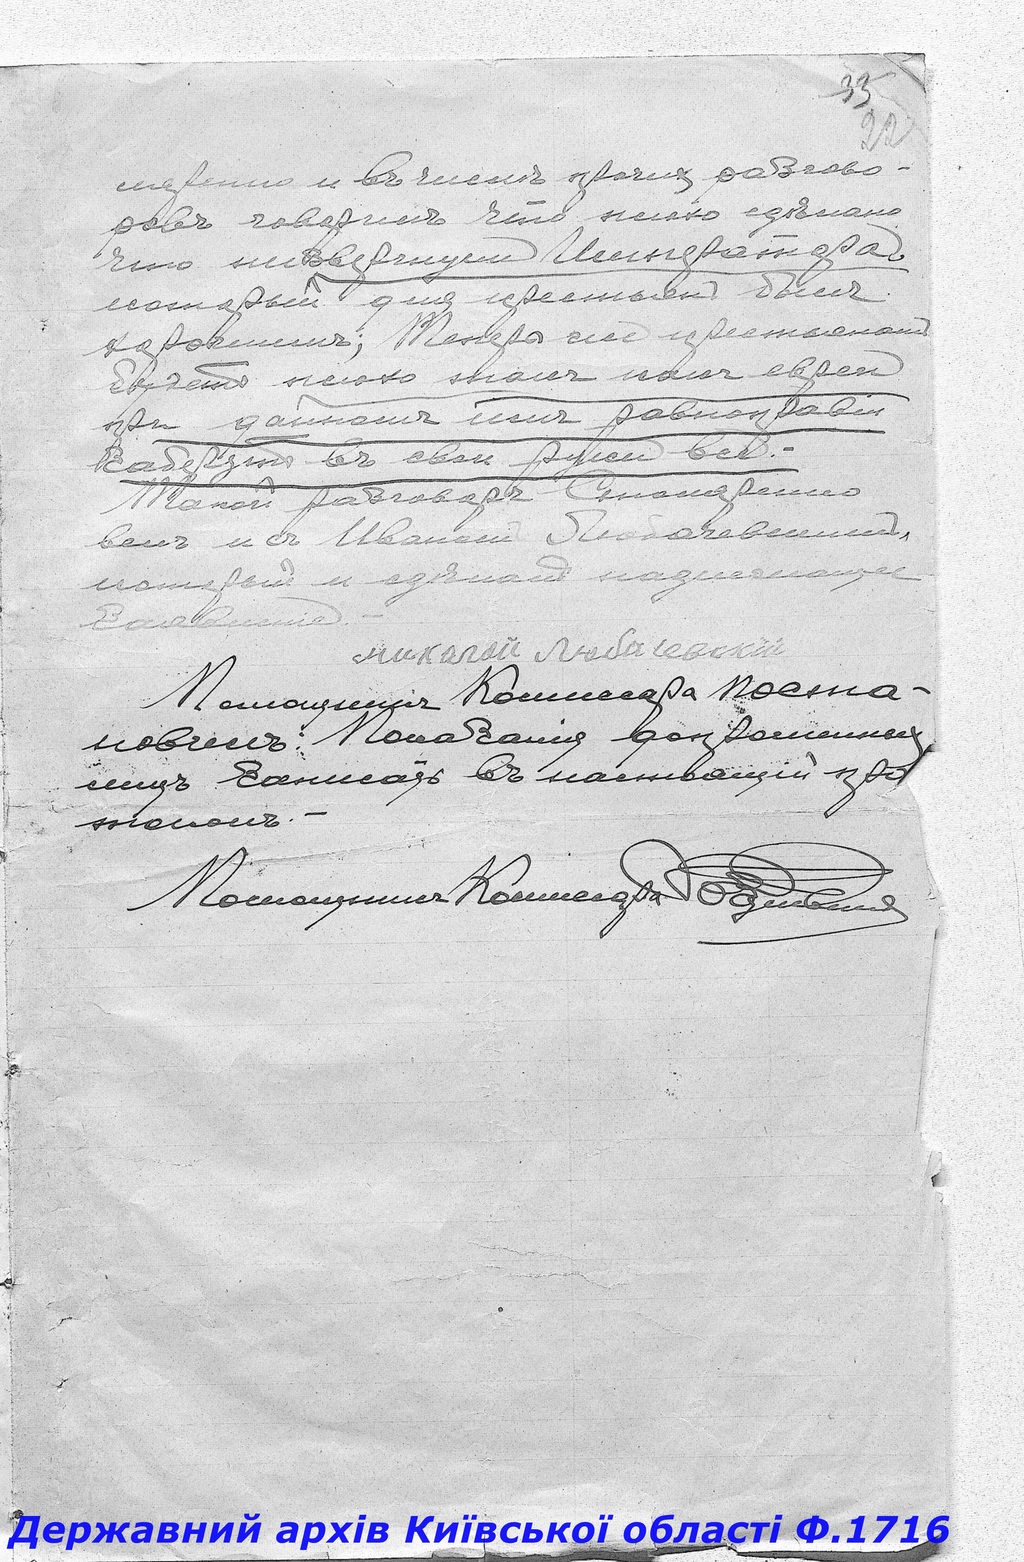 33
22
и въ числѣ прочихъ разгово-
ровъ говорилъ что плохо сдѣлано
что низвергнули Императора,
который для крестьянъ былъ
хорошимъ; Теперь же крестьянамъ
будетъ плохо такъ какъ евреи
при данномъ имъ равноправіи
заберутъ въ свои руки все.-
Такой разговоръ Столяренко
велъ и съ Иваномъ Любачевскимъ,
который и сдѣлалъ надлежащее
заявленіе.-
Николай Любачевскій
Помощникъ Комиссара поста-
новилъ: Показанія допрошенныхъ
лицъ записать въ настоящій про
токолъ.-
Помощникъ Комиссара
Державний архів Київської області Ф.1716